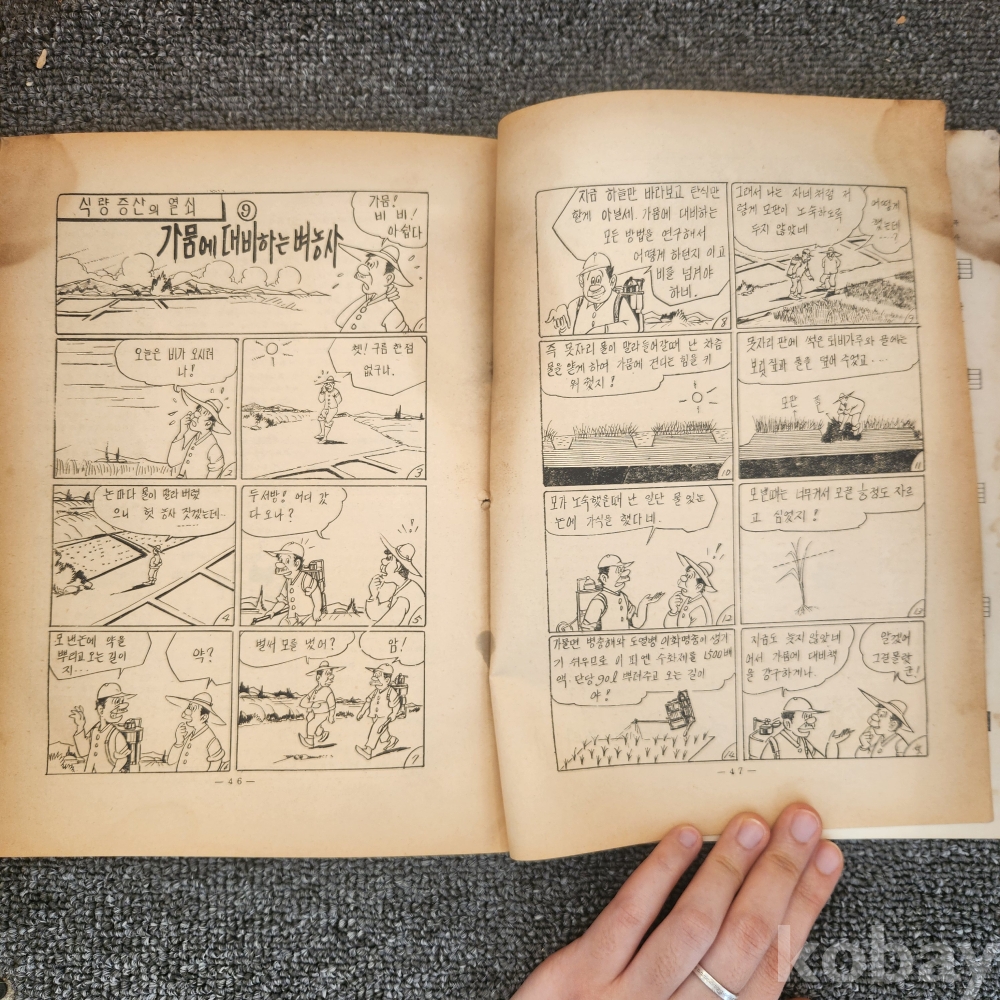 식량 증산의 열쇠
⑨
가뭄에 대비하는 벼농사
가뭄!
비 비!
아쉽다
1
오늘은 비가 오시려
나!
2
쳇! 구름 한 점
없구나.
3
논마다 물이 말라 버렸
으니 헛 농사 짓겠는데…
4
두서방! 어디 갔
다 오나?
5
모 낸 논에 약을
뿌리고 오는 길이
지…
약?
6
벌써 모를 냈어?
암!
7
- 46 -
지금 하늘만 바라보고 탄식만
할게 아닐세. 가뭄에 대비하는
모든 방법을 연구해서
어떻게 하던지 이 고
비를 넘겨야
하네.
8
그래서 나는 자네처럼 저
렇게 모판이 노숙하도록
두지 않았네
어떻게
했는데
…?
9
즉 못자리 물이 말라 들어갈때 난 차츰
물을 얕게 하여 가뭄에 견디는 힘을 키
워 줬지!
10
못자리 판에 썩은 퇴비가루와 판에는
보릿짚과 풀을 덮어 주었고…
모판 풀
11
모가 노숙했을때 난 일단 물 있는
논에 가식을 했다네.
12
모낼때는 너무 커서 모끝 ⅓정도 자르
고 심었지!
13
가물면 병충해와 도열병 이화명충이 생기
기 쉬우므로 이 피 엔 수화제를 1,500배
액. 단당 90ℓ 뿌려주고 오는 길이
야!
14
지금도 늦지 않았네
어서 가뭄에 대비책
을 강구하게나.
알겠어
그걸 몰랐
군!
- 47 -
kobay